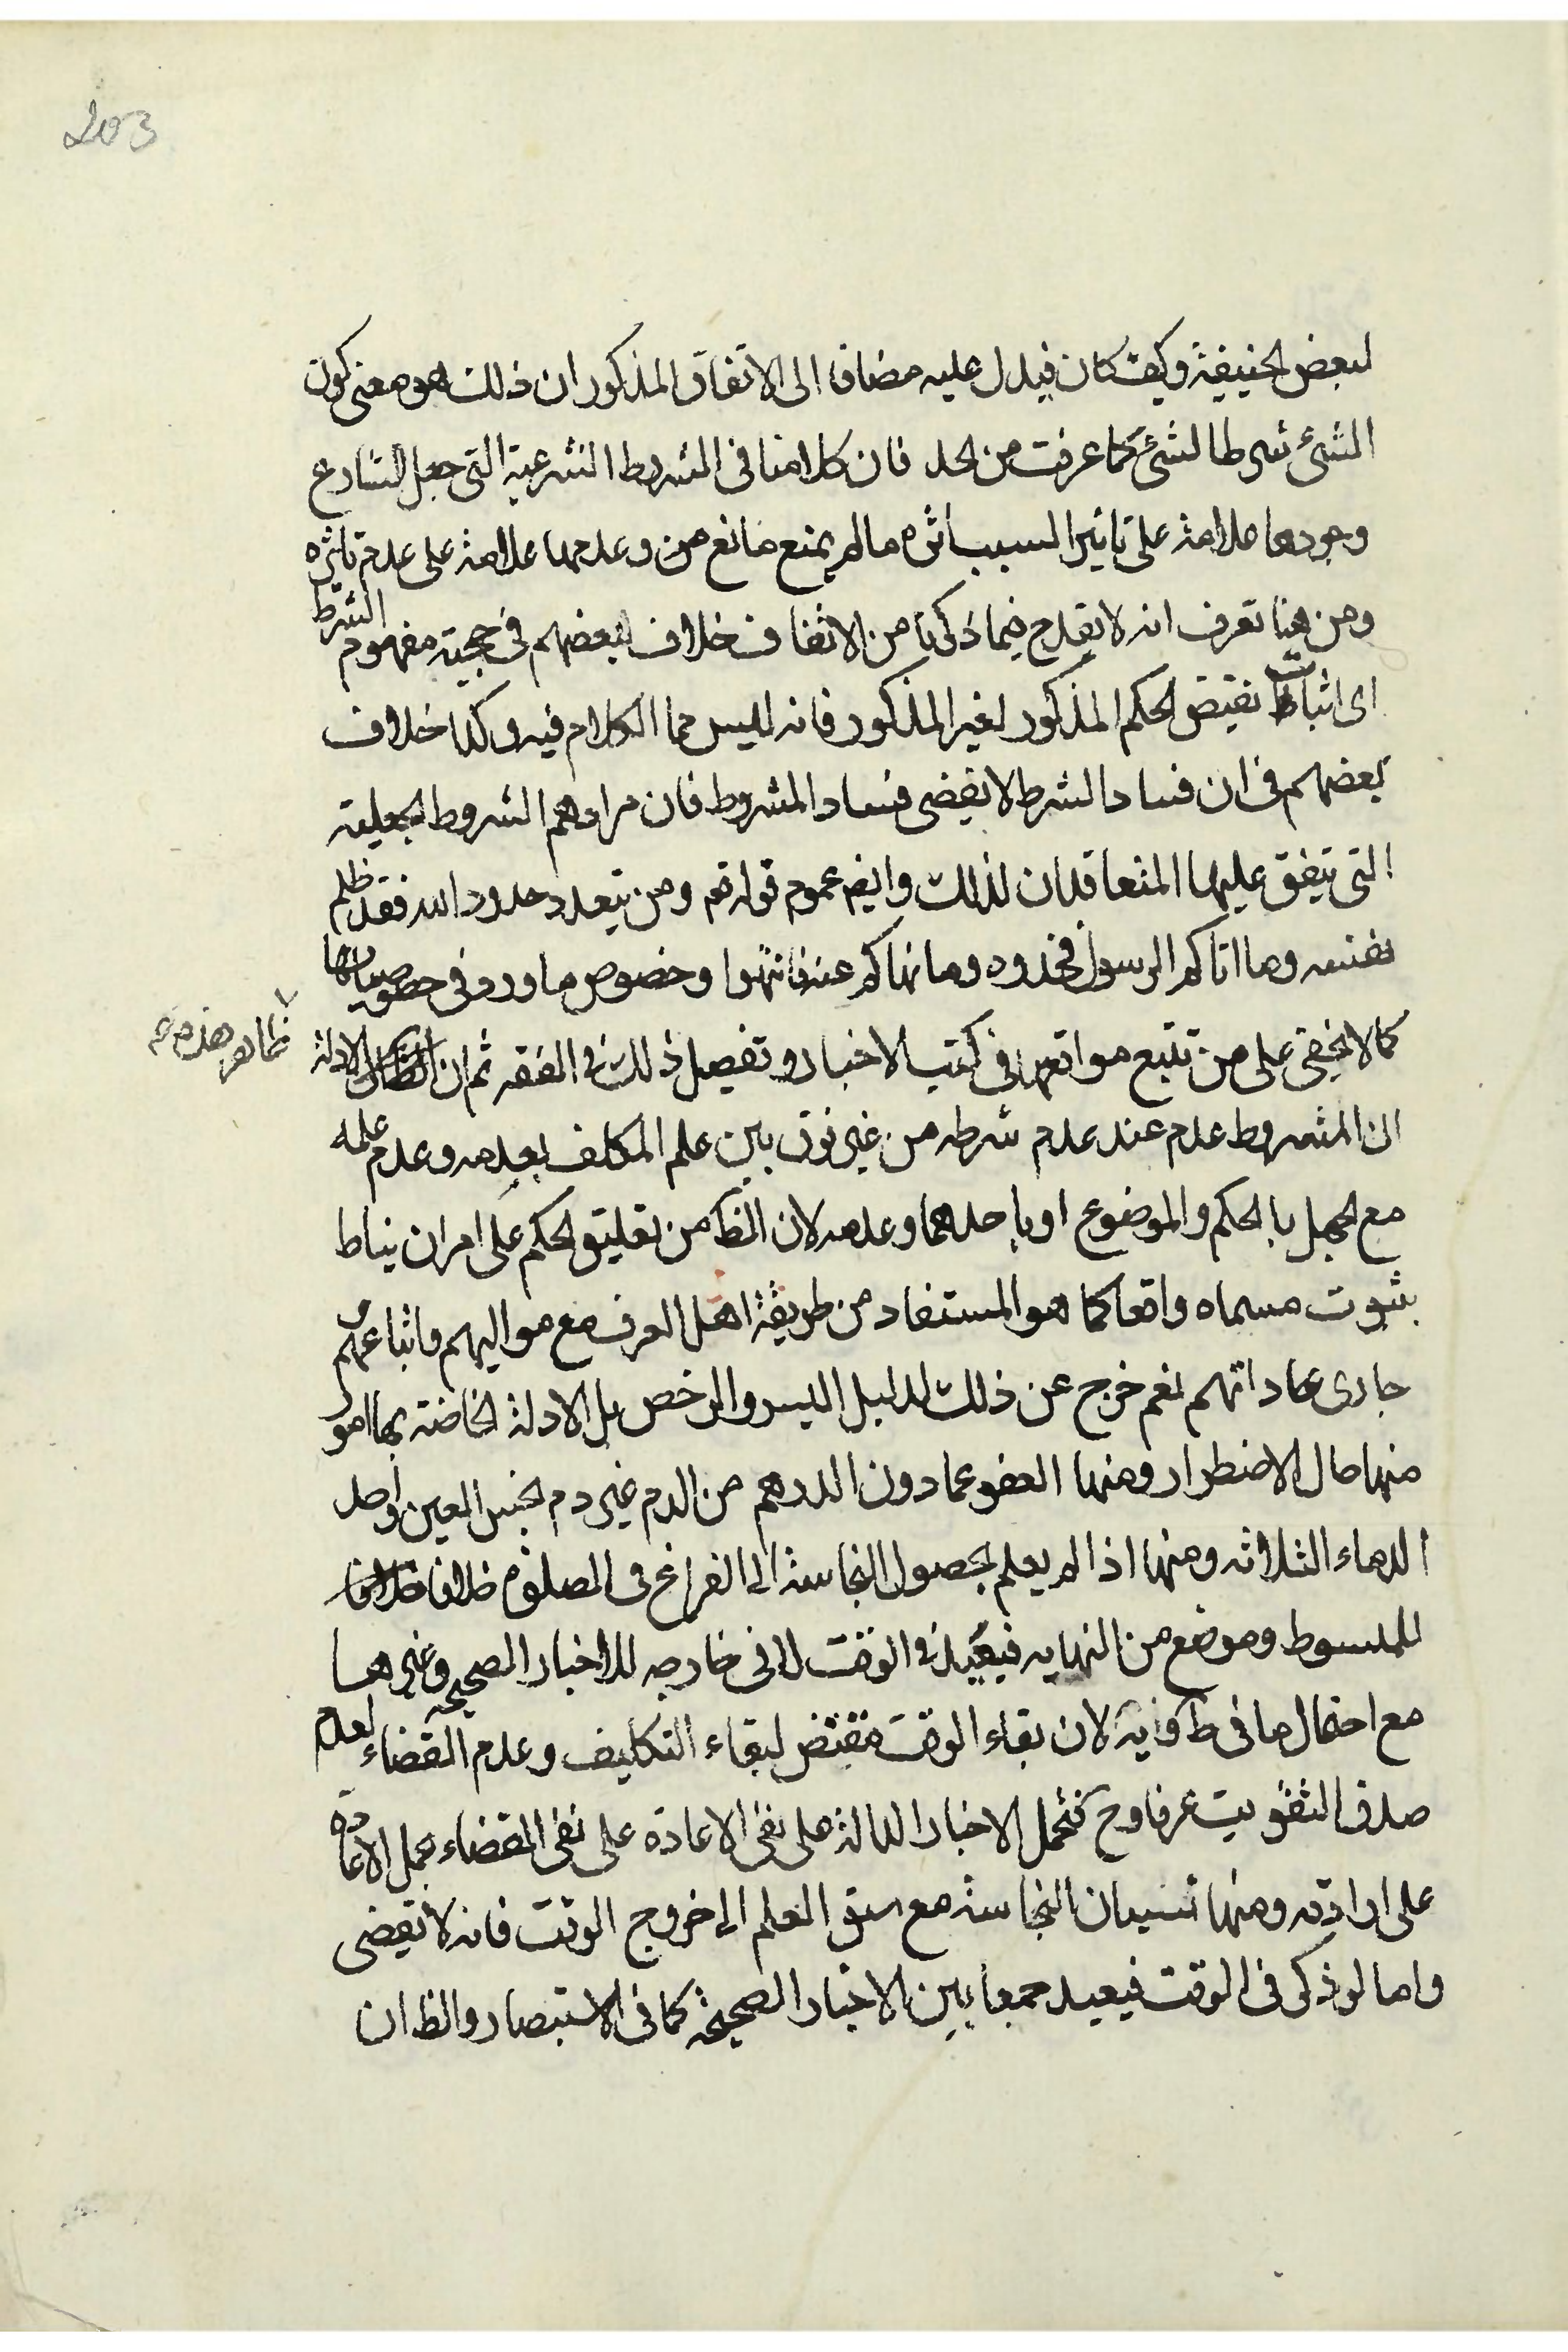 203
لبعض الحنيفية وكيف كان فيدل عليه مضافا الى الاتفاق المذكور ان ذلك هو معنى كون
الشئ شرطا لشئ كما عرفت من الحد فان كلامنا فى الشروط الشرعية التى جعل الشارع
وجودها علامة على تاثير السبب اثره ما لم يمنع مانع من وعدمها علامة على عدم تاثيره
ومن هنا تعرف انه لا يقدح فيما ذكرنا من الاتفاق خلاف بعضهم فى حجية مفهوم الشرط
اى اثبات نقيض الحكم المذكور لغير المذكور فانه ليس مما الكلام فيه وكذا خلاف
بعضهم فى ان فساد الشرط لا يقضى فساد المشروط فان مرادهم الشروط الجعلية
التى يتفق عليها المتعاقدان لذلك وايضم عموم قوله تعم ومن يتعد حدود الله فقد ظلم
نفسه وما اتاكم الرسول فخذوه وما نهاكم عنه فانتهوا وخصوص ما ورد فى خصوصياتها
كما لا يخفى على من تتبع مواقعها فى كتب الاخبار وتفصيل ذلك فى الفقه ثم ان الادلة
ظاهر هذه
ان المشروط عدم عند عدم شرطه من غير فرق بين علم المكلف بعدمه وعدم علمه
مع الجهل بالحكم والموضوع او باحدهما وعدمه لان الظ من تعليق الحكم على امر ان يناط
بثبوت مسماه واقعا كما هو المستفاد من طريقة اهل العرف مع مواليهم واتباعهم فى
جارى عاداتهم نعم خرج عن ذلك لدليل اليسر والرخص بل الادلة الخاصة بها امور
منها حال الاضطرار ومنها العفو عما دون الدرهم من الدم غير دم نجس العين واحد
الدماء الثلاثه ومنها اذا لم يعلم بحصول النجاسة الى الفراغ فى الصلوة خلافا
للمبسوط وموضع من النهايه فيعيد فى الوقت لا فى خارجه للاخبار الصحيحه وغيرها
مع احتمال ما فى ط لان بقاء الوقت مقتض لبقاء التكليف وعدم القضاء لعدم
صدق التفويت عرفا وح فتحمل الاخبار الدالة على نفى الاعادة على نفى القضاء بحمل الاعادة
على ارادته ومنها نسيان النجاسة مع سبق العلم الى خروج الوقت فانه لا يقضى
واما لو ذكر فى الوقت فيعيد جمعا بين الاخبار الصحيحة كما فى الاستبصار والظ ان